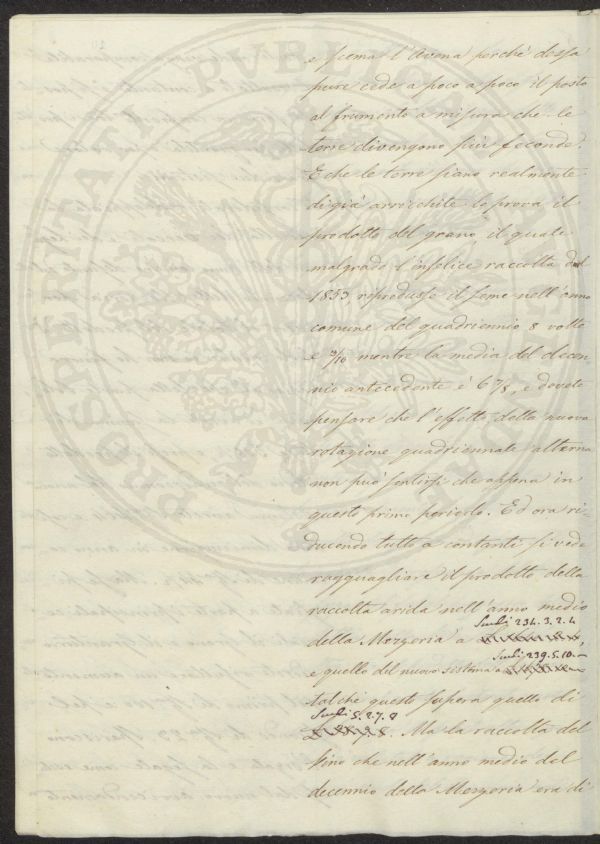 e scema l'Avena perché dessa
pure cede a poco a poco il posto
al frumento a misura che le
terre divengono più feconde.
E che le terre siano realmente
di già arricchite lo prova il
prodotto del grano, il quale
malgrado l'infelice raccolta del
1853 riprodusse il seme nell'anno
comune del quadriennio 8 volte
e 9/10 mentre la media del decen-
nio antecedente è 6 7/8, e dovete
pensare che l'effetto della nuova
rotazione quadriennale alterna
non può sentirsi che appena in
questo primo periodo. Ed ora ri-
ducendo tutto a contanti si vede
ragguagliare il prodotto della
raccolta arida nell'anno medio
Scudi 234. 3. 2. 4
della Mezzeria a
Scudi 239. 5. 10. —
e quello del nuovo sistema a
talché questo supera quello di
Scudi 5. 2. 7. 8
Ma la raccolta del
fino che nell'anno medio del
decennio della Mezzeria era di
PROSPERITATI PUBLICAE